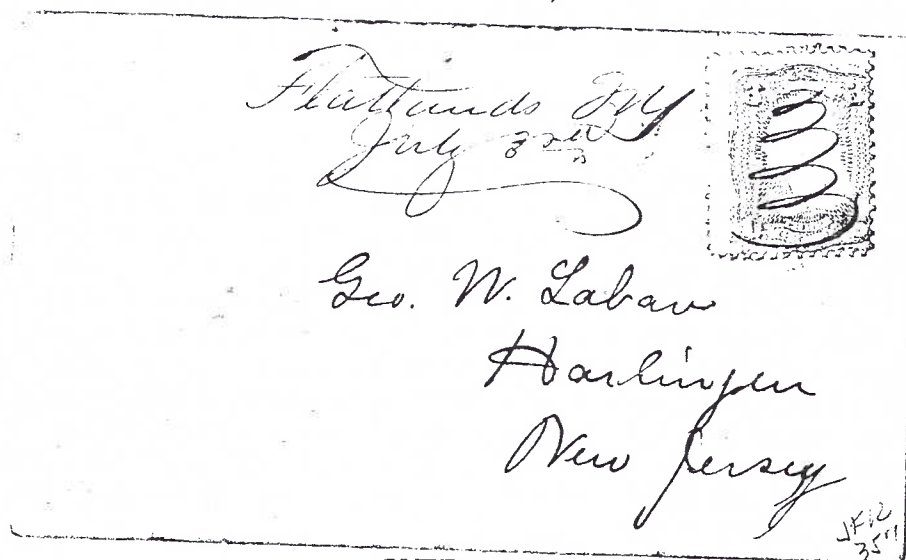 Flatlands NY
July 3rd
Geo. W. Labaw
Harlingen
New Jersey